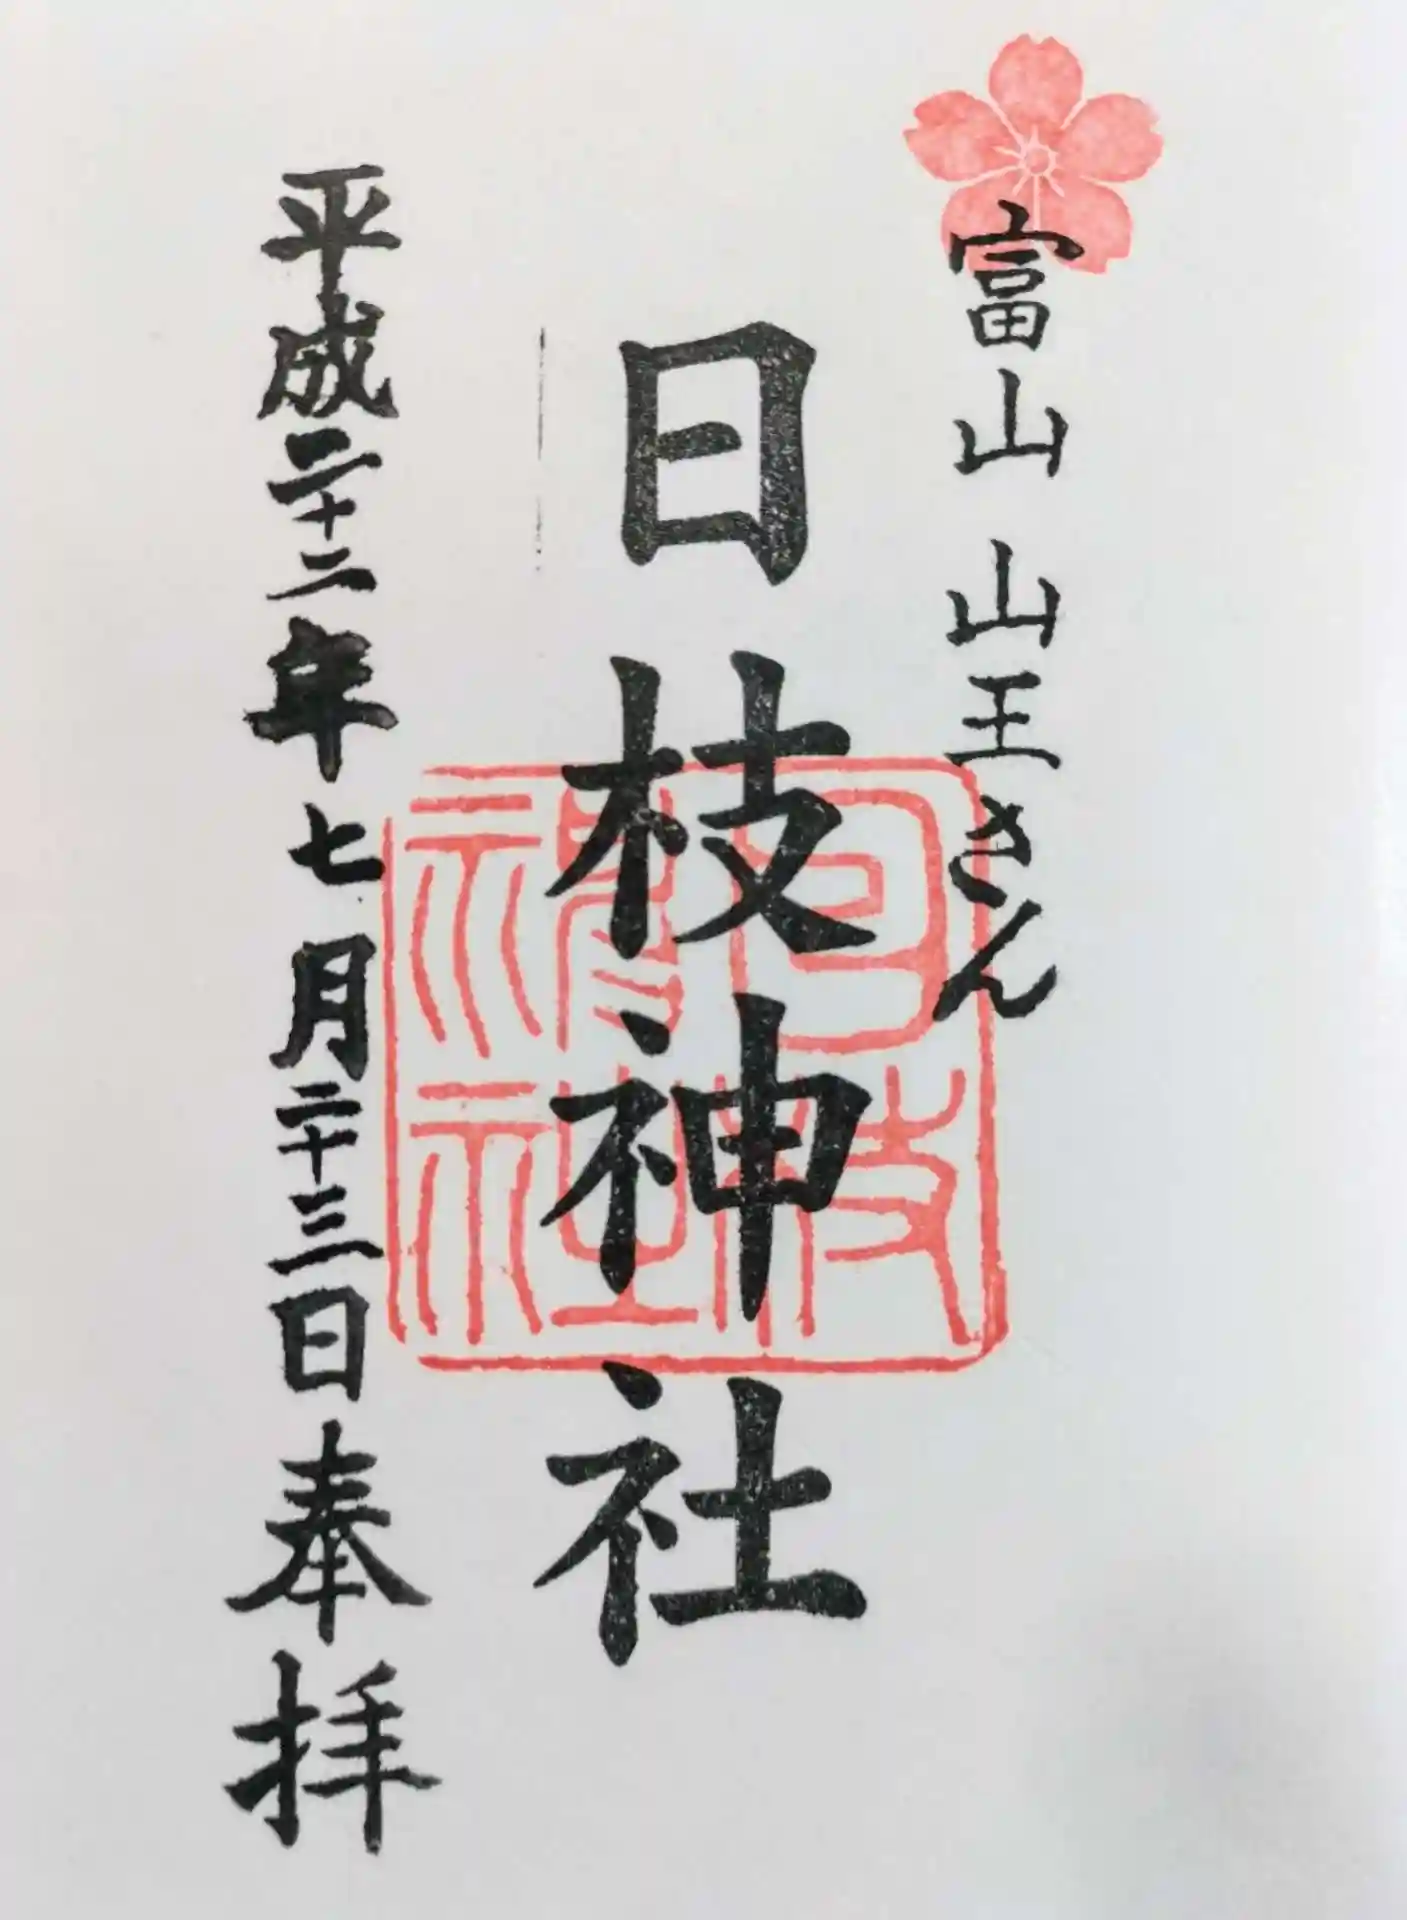 富山 山王さん
日枝神社
平成二十二年七月二十三日奉拝
日枝
神社